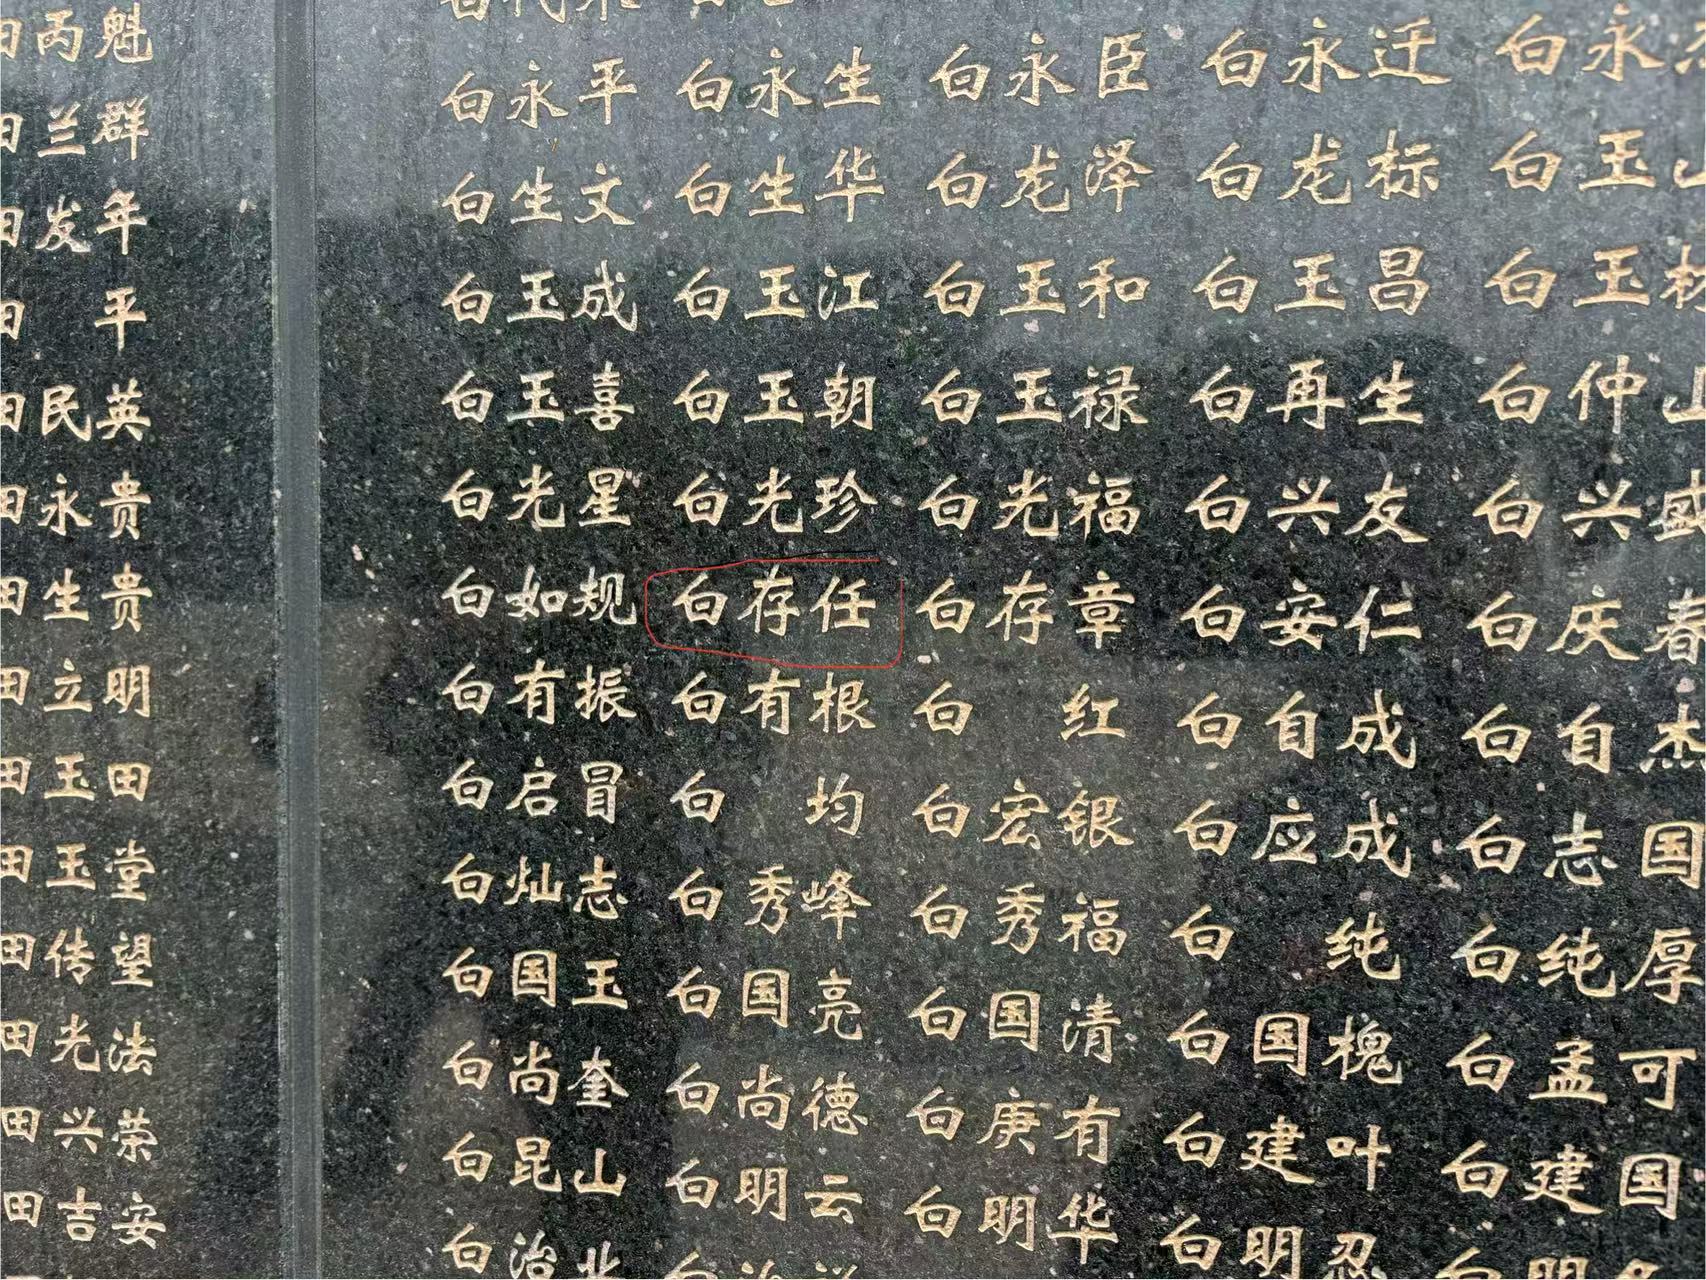 田丙魁
田兰群
田发年
田 平
田民英
田永贵
田生贵
田立明
田玉田
田玉堂
田传望
田光法
田兴荣
田吉安
白永平 白永生 白永臣 白永迁 白永
白生文 白生华 白龙泽 白龙标 白玉
白玉成 白玉江 白玉和 白玉昌 白玉
白玉喜 白玉朝 白玉禄 白再生 白仲山
白光星 白光珍 白光福 白兴友 白兴盛
白如规 白存任 白存章 白安仁 白庆春
白有振 白有根 白 红 白自成 白自杰
白启冒 白 均 白宏银 白应成 白志国
白灿志 白秀峰 白秀福 白 纯 白纯厚
白国玉 白国亮 白国清 白国槐 白孟可
白尚奎 白尚德 白庚有 白建叶 白建国
白昆山 白明云 白明华 白明忍 明
白治